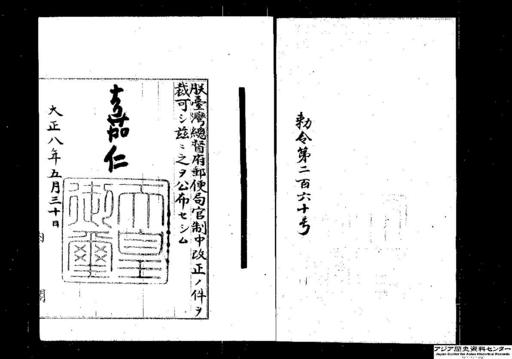 勅令第二百六十号
朕臺灣總督府郵便局官制中改正ノ件ヲ
裁可シ茲ニ之ヲ公布セシム
嘉仁
天皇
御璽
大正八年五月三十日
アジア歴史資料センター
Japan Center for Asian Historical Records